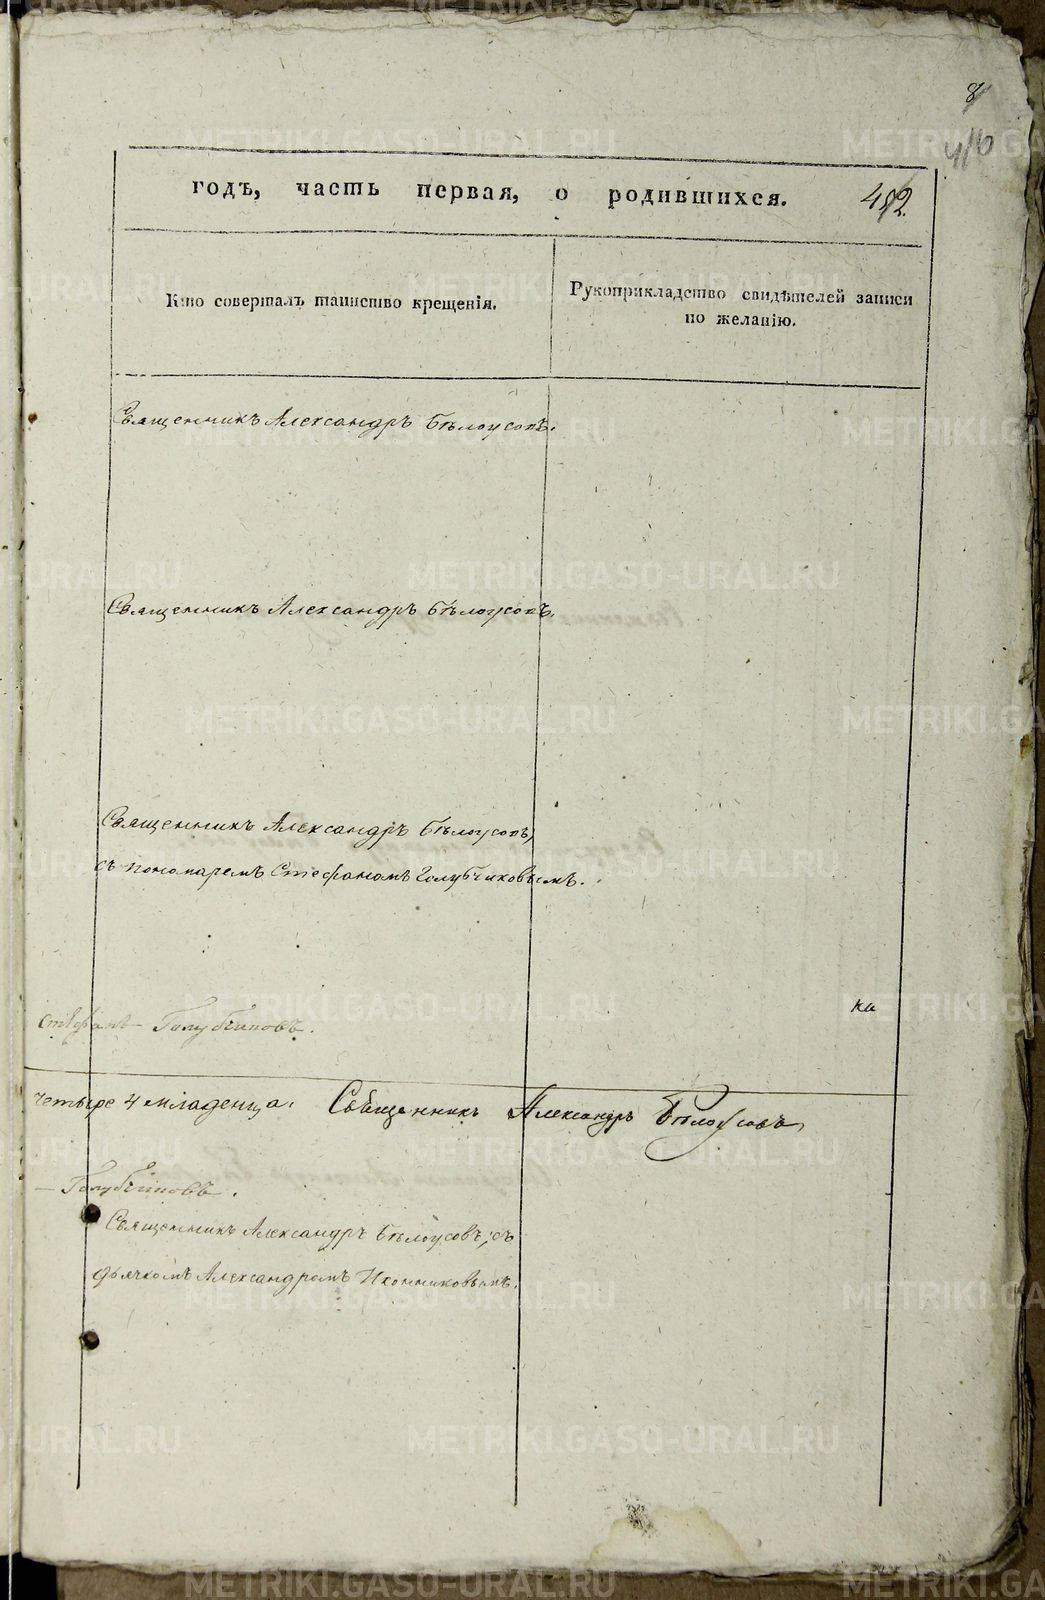 8
годъ, часть первая, о родившихся.
Кто совершалъ таинство крещенія.
Рукоприкладство свидѣтелей записи
по желанію.
Священникъ Александръ Бѣлоусовъ.
Священникъ Александръ Бѣлоусовъ.
Священникъ Александръ Бѣлоусовъ,
съ пономаремъ Стефаномъ Голубчиковымъ.
ка
Стефанъ Голубчиковъ.
четыре 4 младенца. Священникъ Александръ Бѣлоусовъ
Голубчиковъ.
Священникъ Александръ Бѣлоусовъ, съ
дьячкомъ Александромъ Иконниковымъ.
METRIKI.GASO-URAL.RU